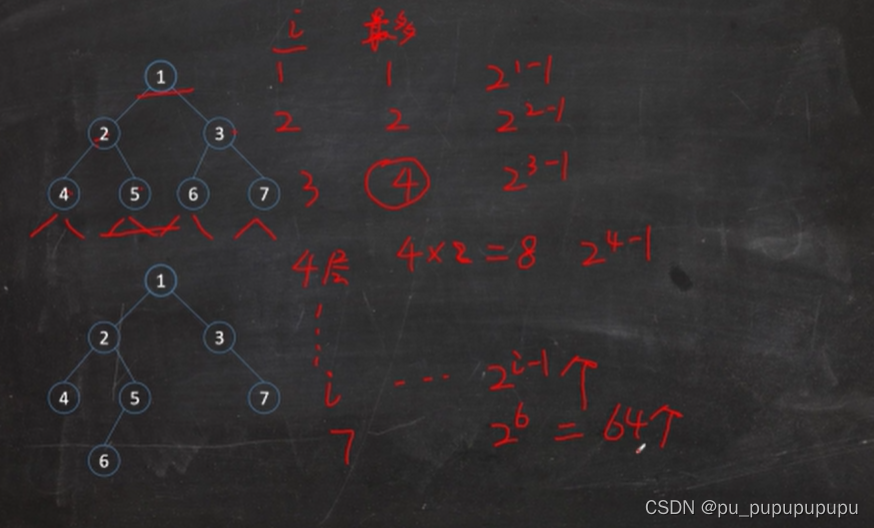 i 最多
1 1 2^{1-1}
1
2 2 2^{2-1}
2 3
3 4 2^{3-1}
4 5 6 7
4层 4×2=8 2^{4-1}
1
2 3
i ... 2^{i-1}个
4 5 7
7 2^6=64个
6
CSDN @pu_pupupupupu